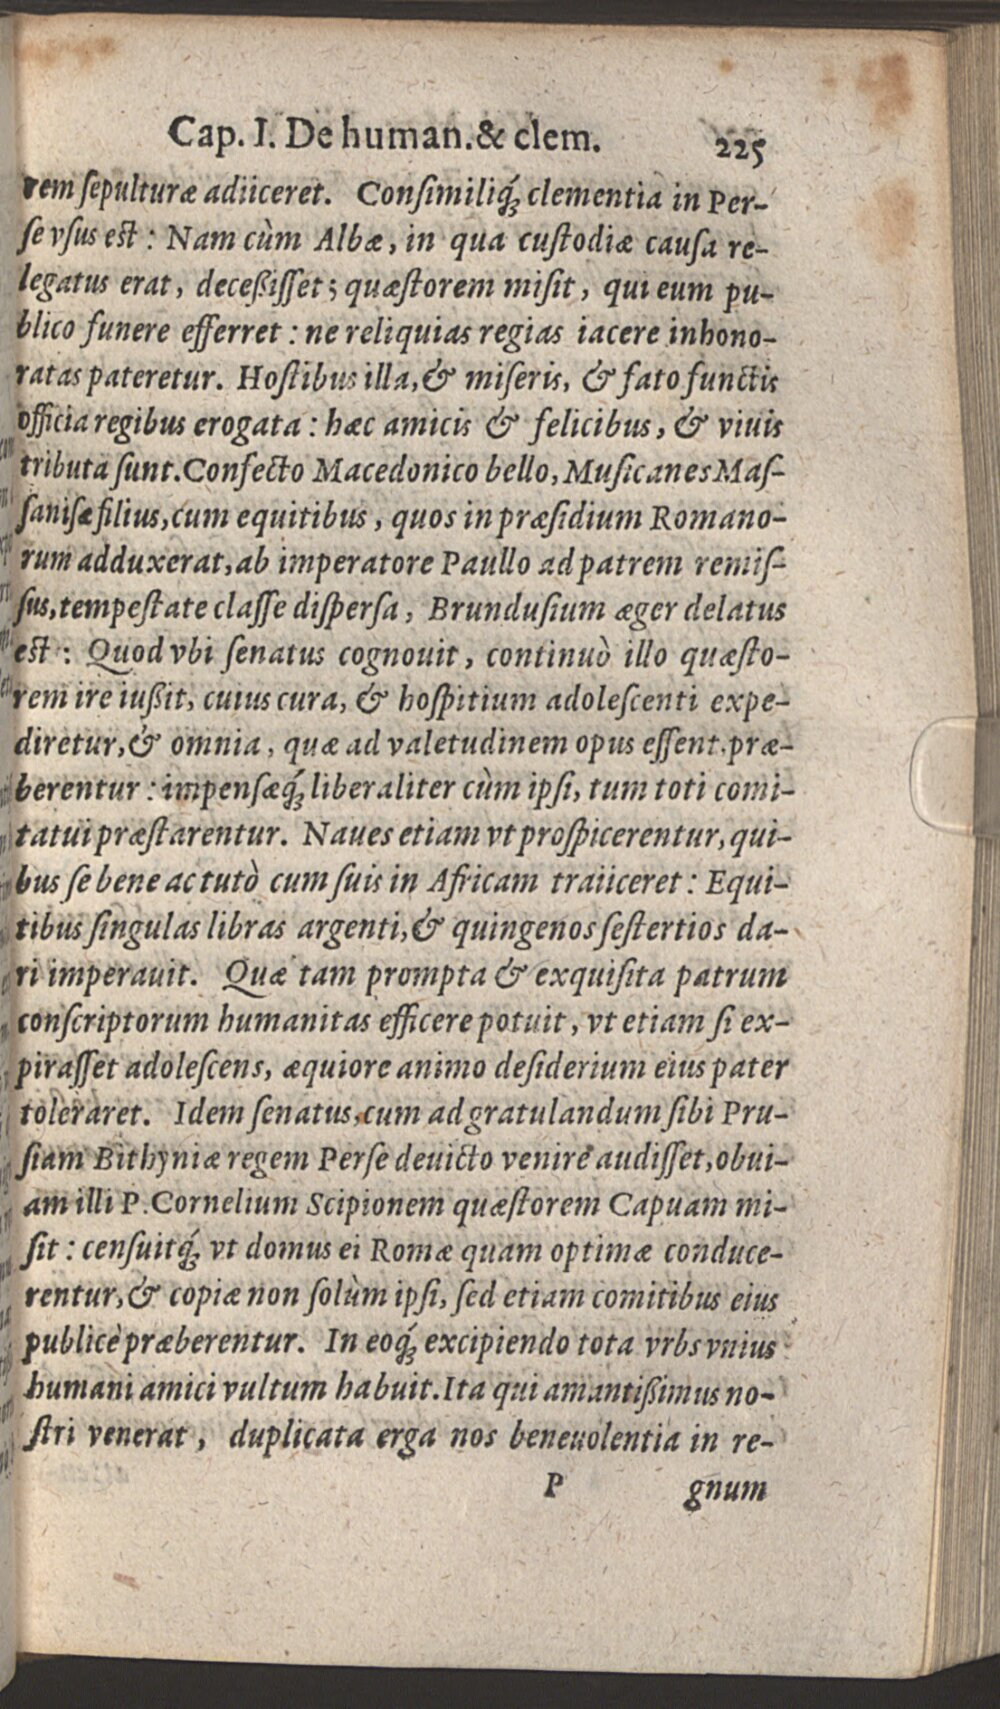 Cap. I. De human. & clem. 225
rem ſepulturæ adiiceret. Conſimiliq́; clementia in Per-
ſe vſus eſt : Nam cùm Albæ, in qua cuſtodiæ cauſa re-
legatus erat, deceßiſſet; quæſtorem miſit, qui eum pu-
blico funere efferret : ne reliquias regias iacere inhono-
ratas pateretur. Hoſtibus illa, & miſeris, & fato functis
officia regibus erogata : hæc amicis & felicibus, & viuis
tributa ſunt. Confecto Macedonico bello, Muſicanes Maſ-
ſaniſæ filius, cum equitibus, quos in præſidium Romano-
rum adduxerat, ab imperatore Paullo ad patrem remiſ-
ſus, tempeſtate claſſe diſperſa, Brunduſium æger delatus
eſt : Quod vbi ſenatus cognouit, continuò illo quæſto-
rem ire iußit, cuius cura, & hoſpitium adoleſcenti expe-
diretur, & omnia, quæ ad valetudinem opus eſſent, præ-
berentur : impenſæq́; liberaliter cùm ipſi, tum toti comi-
tatui præſtarentur. Naues etiam vt proſpicerentur, qui-
bus ſe bene ac tutò cum ſuis in Africam traiiceret : Equi-
tibus ſingulas libras argenti, & quingenos ſeſtertios da-
ri imperauit. Quæ tam prompta & exquiſita patrum
conſcriptorum humanitas efficere potuit, vt etiam ſi ex-
piraſſet adoleſcens, æquiore animo deſiderium eius pater
toleraret. Idem ſenatus, cum ad gratulandum ſibi Pru-
ſiam Bithyniæ regem Perſe deuicto venire audiſſet, obui-
am illi P. Cornelium Scipionem quæſtorem Capuam mi-
ſit : cenſuitq́; vt domus ei Romæ quam optimæ conduce-
rentur, & copiæ non ſolùm ipſi, ſed etiam comitibus eius
publicè præberentur. In eoq́; excipiendo tota vrbs vnius
humani amici vultum habuit. Ita qui amantißimus no-
ſtri venerat, duplicata erga nos beneuolentia in re-
P gnum